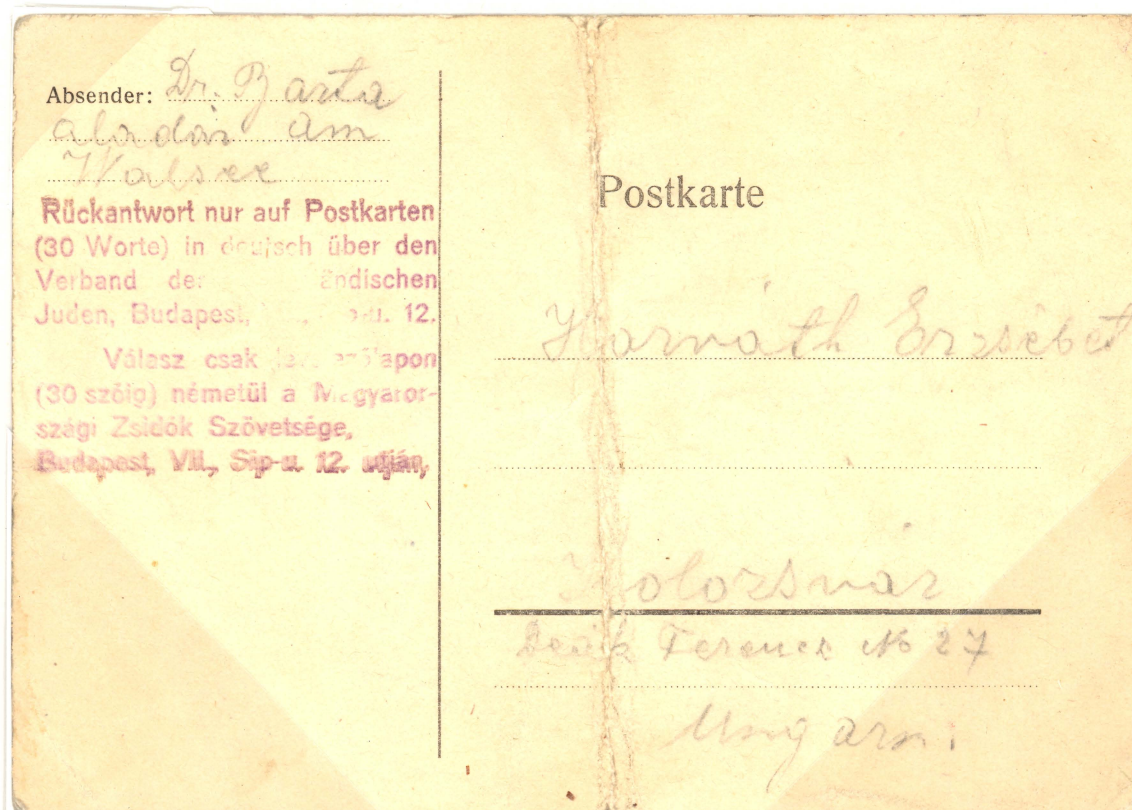 Absender: Dr. Barta
Aladár am
Walsee
Rückantwort nur auf Postkarten
(30 Worte) in deutsch über den
Verband der ändischen
Juden, Budapest, u. 12.
Válasz csak
(30 szóig) németül a Magyaror-
szági Zsidók Szövetsége,
Budapest, VII., Sip-u. 12. utján,
Postkarte
Horváth Erzsébet
Kolozsvár
Deák Ferencz No 27
Ungarn.